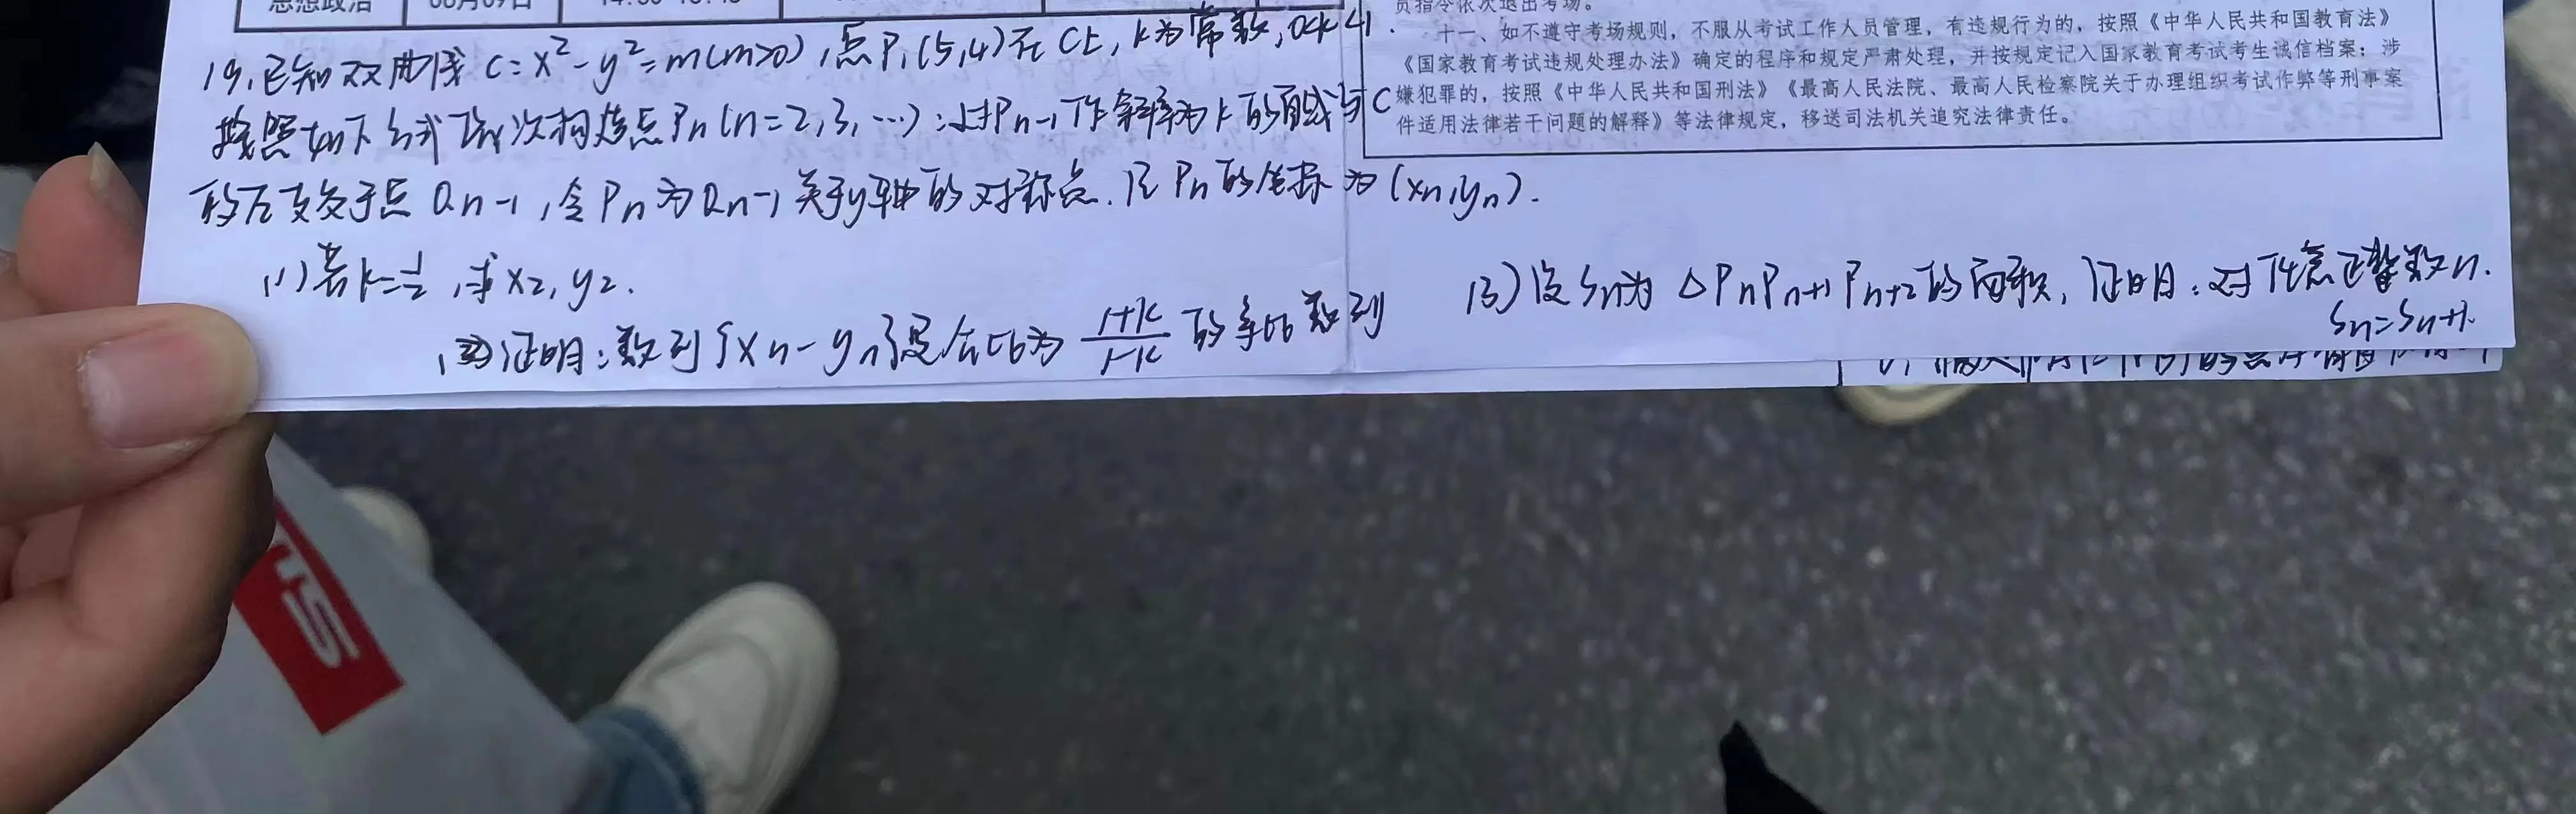 思想政治
员指令依次退出考场。
十一、如不遵守考场规则，不服从考试工作人员管理，有违规行为的，按照《中华人民共和国教育法》
《国家教育考试违规处理办法》确定的程序和规定严肃处理，并按规定记入国家教育考试考生诚信档案；涉
嫌犯罪的，按照《中华人民共和国刑法》《最高人民法院、最高人民检察院关于办理组织考试作弊等刑事案
件适用法律若干问题的解释》等法律规定，移送司法机关追究法律责任。
19.已知双曲线 C: x²-y²=m(m>0),点P₁(5,4)在C上,k为常数,0<k<1.
按照如下方式依次构造点Pn(n=2,3,…):过Pn-1作斜率为k的直线与C
的左支交于点Qn-1,令Pn为Qn-1关于y轴的对称点.记Pn的坐标为(xn,yn).
(1)若k=1/2,求x₂,y₂.
(2)证明:数列{xn-yn}是公比为 (1+k)/(1-k) 的等比数列
(3)设Sn为△PnPn+1Pn+2的面积,证明:对任意正整数n.
Sn=Sn+1.